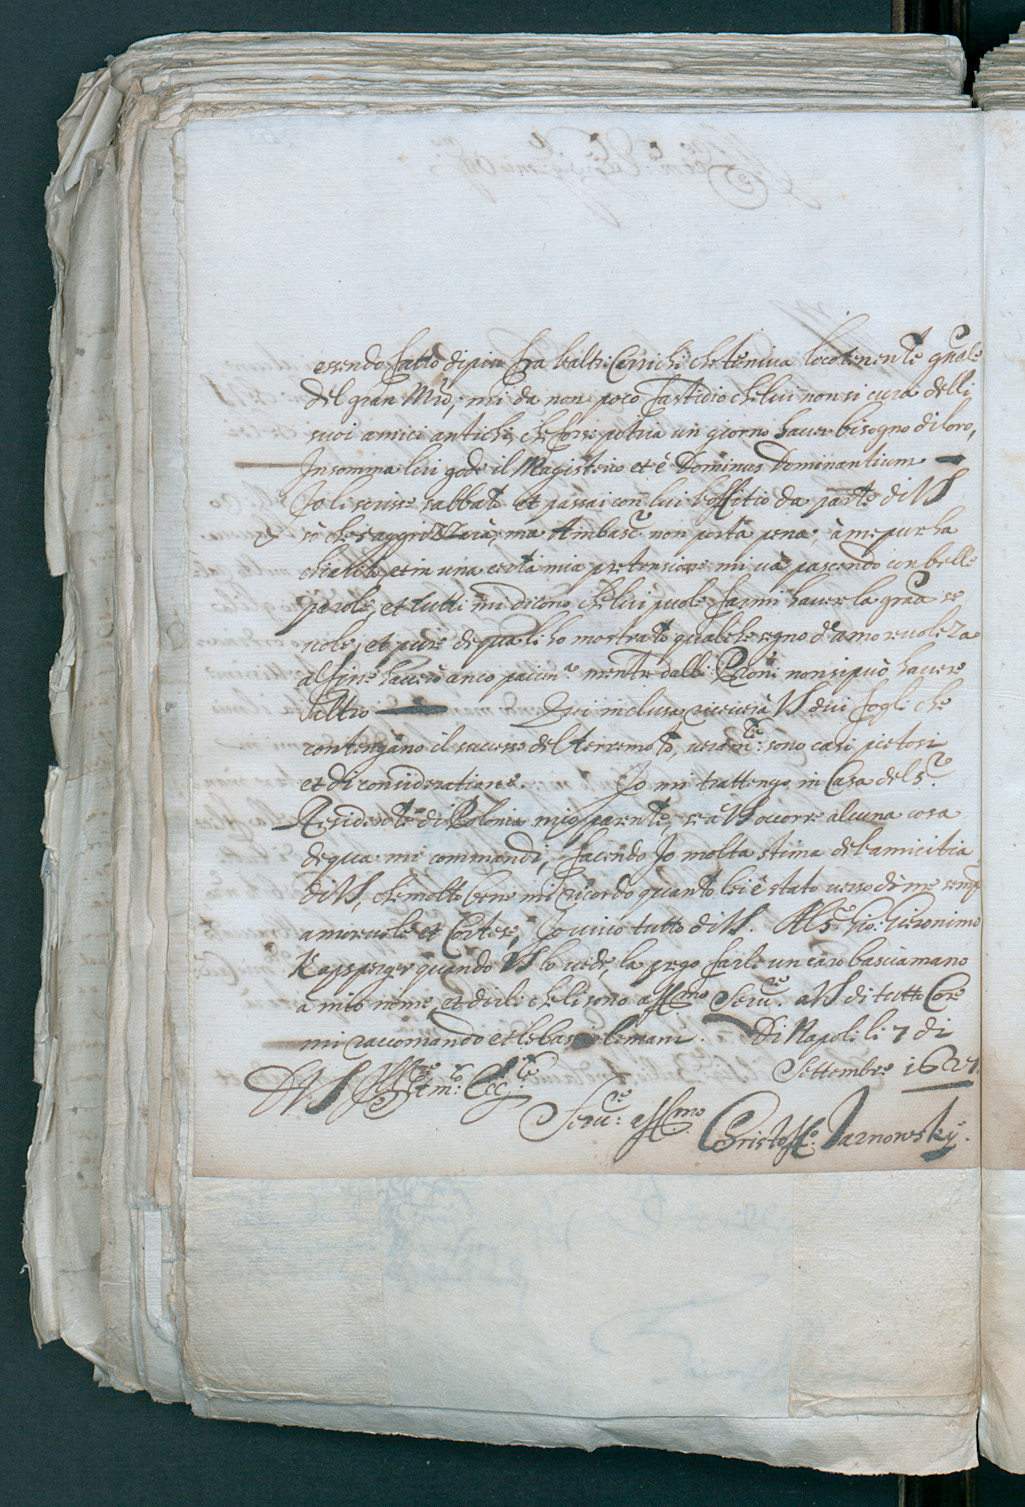 essendo fatto di piu fra l'altri Carrichi che teniva locotenente g'nale
del gran Mro, mi da non poco fastidio che lui non si cura delli
suoi amici antichi, che forse potria un giorno haver bisogno di loro,
Insomma lui gode il Magisterio et è Dominus Dominantium
Io li scrisse sabbato et passai con lui l'offitio da parte di VS
sò che s'aggrizzarà, ma Ambasc.r non porta pena, à me pur ha
et in una certa mia pretensione mi và pascendo con belle
parole, et tutti mi dicono che lui puole farmi haver la gra'a se
vole, et pure de quali ho mostrato qualche segno d'amorevoleza
al fine haverò anco pacien.a mentre dalli P'roni non si può havere
altro Qui incluso riceverà VS dui fogli che
contengano il successo del terremoto, veram.te sono casi pietosi
et di consideratione. Io mi trattengo in Casa del S.re
Residente di Polonia mio parente, se à VS occorre alcuna cosa
de qua mi commandi, facendo Io molta stima del'amicitia
di VS, che molto bene mi ricordo quanto lei è stato verso di me semp
amorevole et Cortese, Io vivo tutto di VS. Al S.r Gio: Gieronimo
Kapsperger quando VS lo vede, la prego farli un caro basciamano
à mio nome, et dirli che li sono aff.mo Serv.re a VS di tutto Core
mi raccomando et le bascio le mani. Di Napoli li 7 di
Settembre 1627.
Di VS Ill.re et Ecc.te
Serv.re aff.mo Christoff.o Jarnowsky.